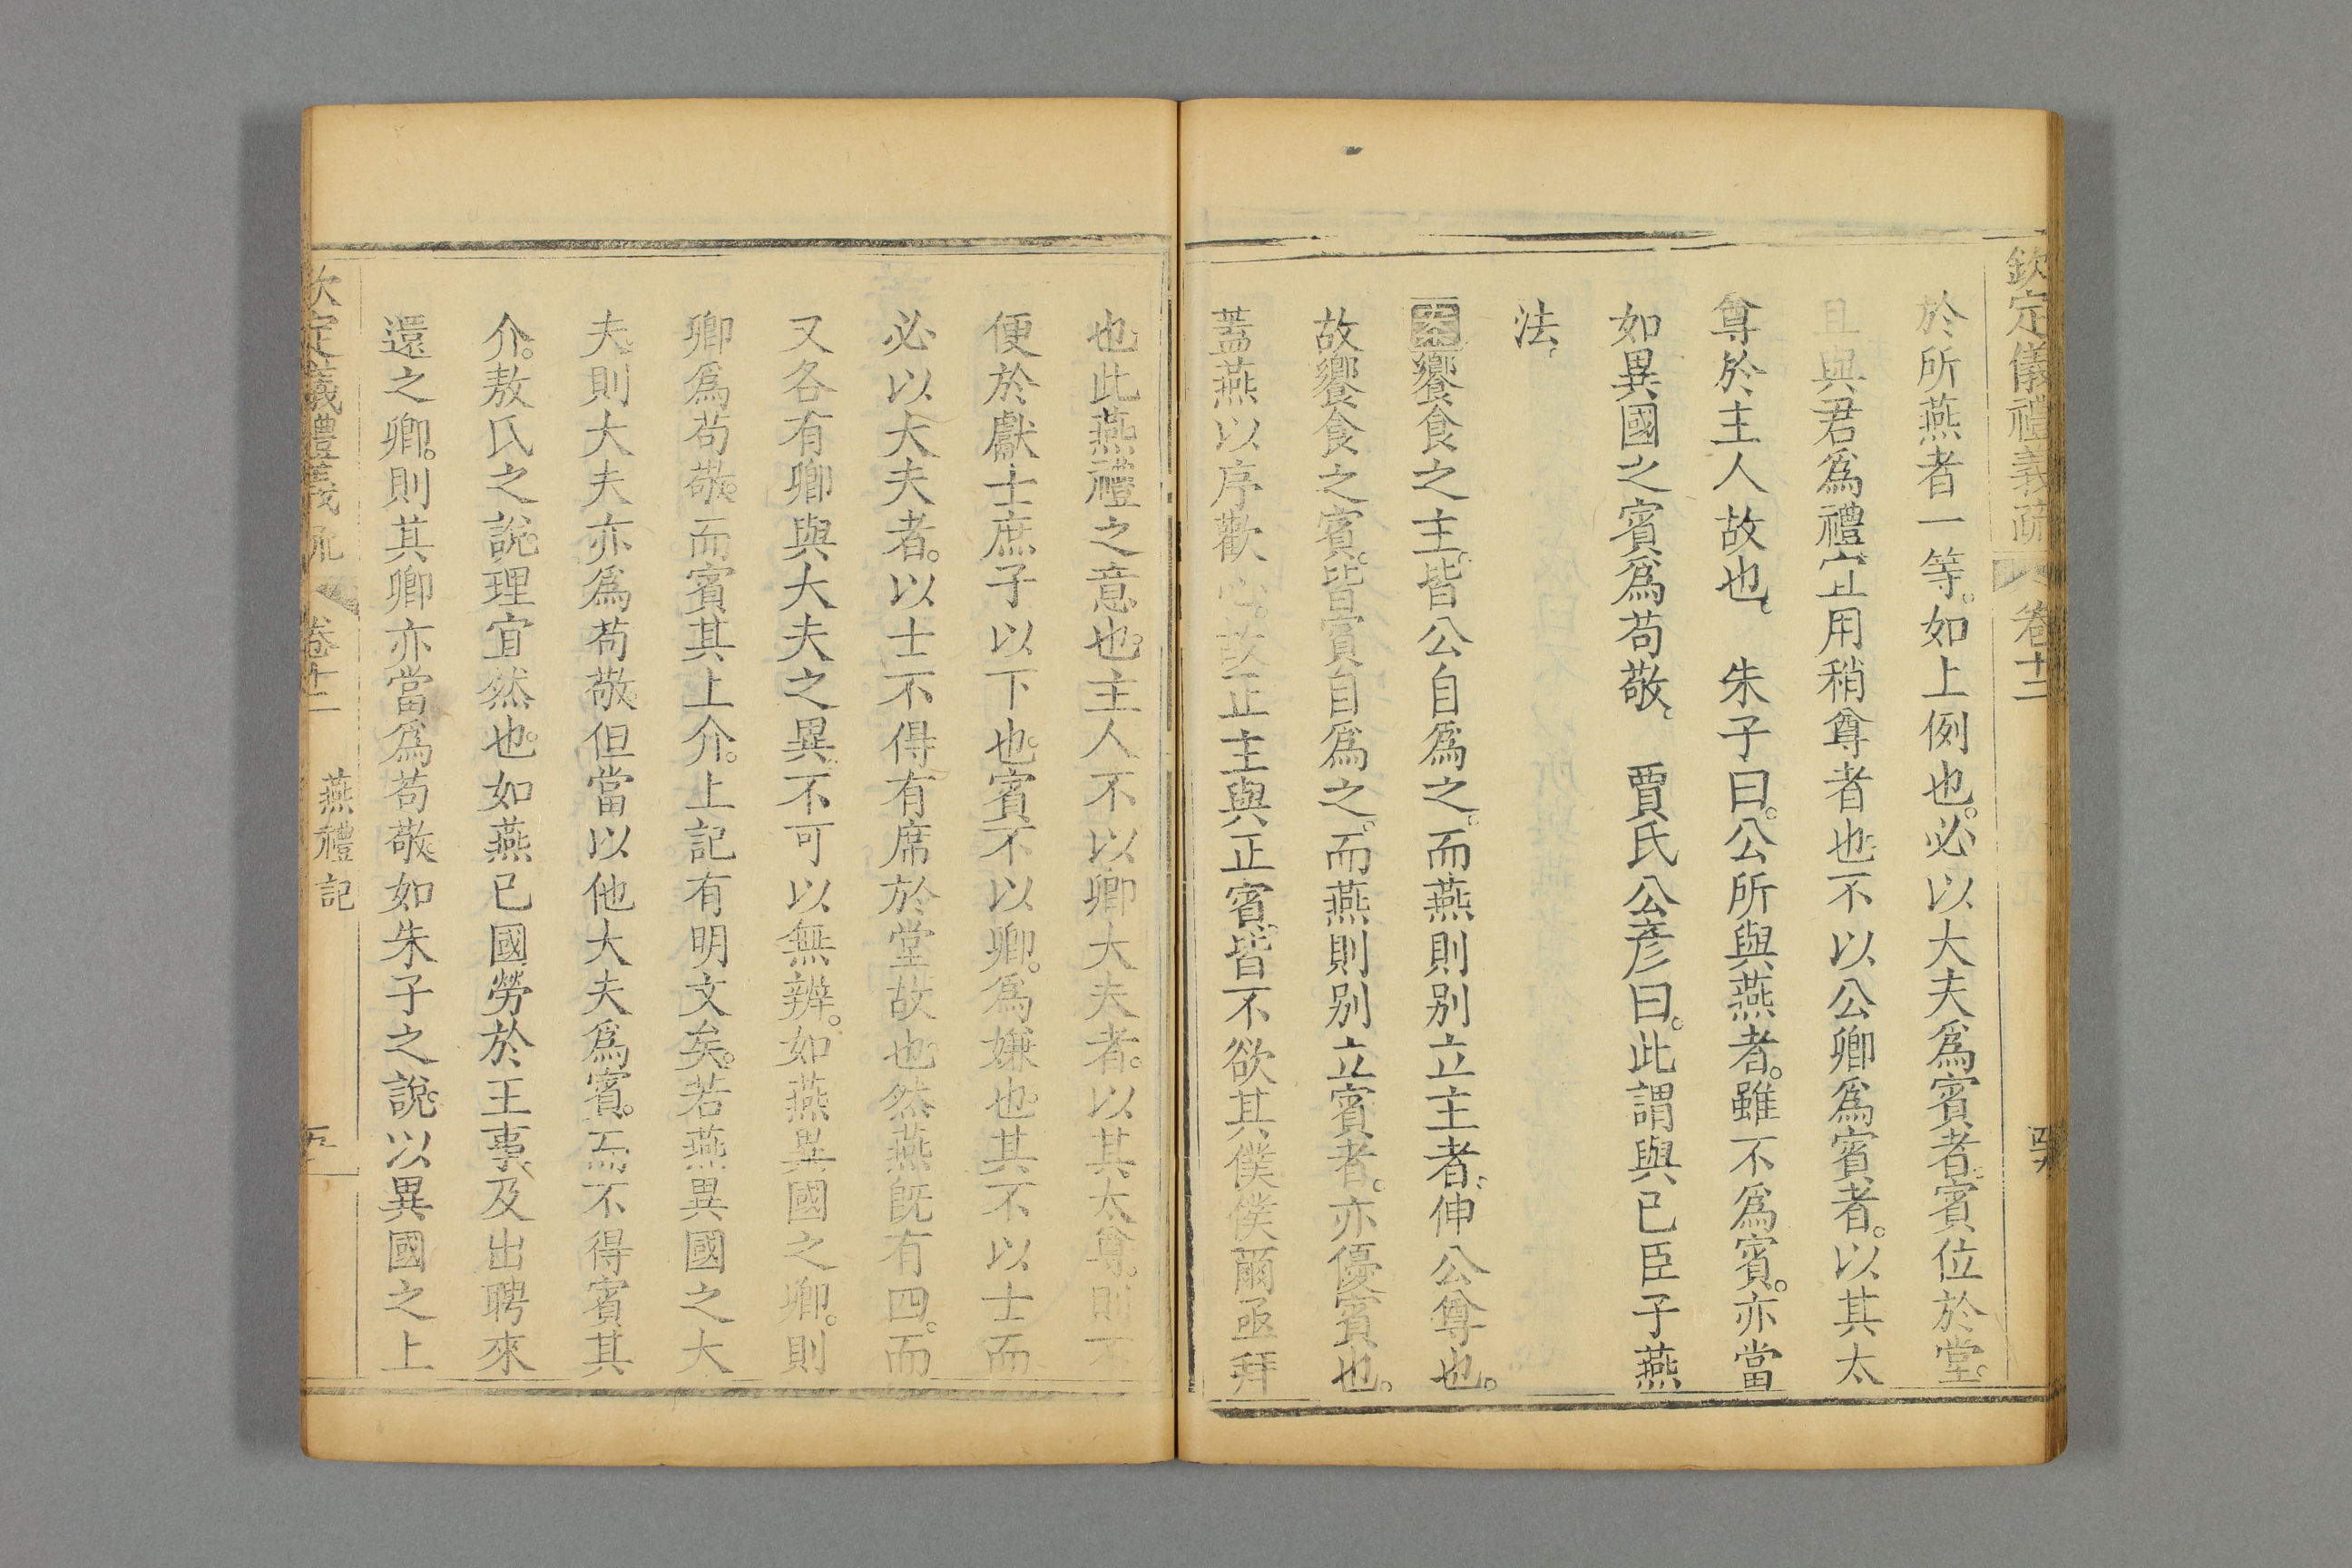 欽定儀禮義疏 卷十二
於所燕者一等。如上例也。必以大夫爲賓者。賓位於堂。
且與君爲禮宜用稍尊者也。不以公卿爲賓者。以其太
尊於主人故也。 朱子曰。公所與燕者。雖不爲賓。亦當
如異國之賓爲苟敬。 賈氏公彦曰。此謂與己臣子燕
法。
案饗食之主。皆公自爲之。而燕則别立主者。伸公尊也。
故饗食之賓。皆賓自爲之。而燕則别立賓者。亦優賓也。
蓋燕以序歡心。故正主與正賓。皆不欲其僕僕爾亟拜
也。此燕禮之意也。主人不以卿大夫者。以其太尊。則不
便於獻士庶子以下也。賓不以卿。爲嫌也。其不以士而
必以大夫者。以士不得有席於堂故也。然燕旣有四。而
又各有卿與大夫之異。不可以無辨。如燕異國之卿。則
卿爲苟敬。而賓其上介。上記有明文矣。若燕異國之大
夫。則大夫亦爲苟敬。但當以他大夫爲賓。而不得賓其
介。敖氏之說。理宜然也。如燕已國勞於王事。及出聘來
還之卿。則其卿亦當爲苟敬。如朱子之說。以異國之上
欽定儀禮義疏 卷十二 燕禮記 五